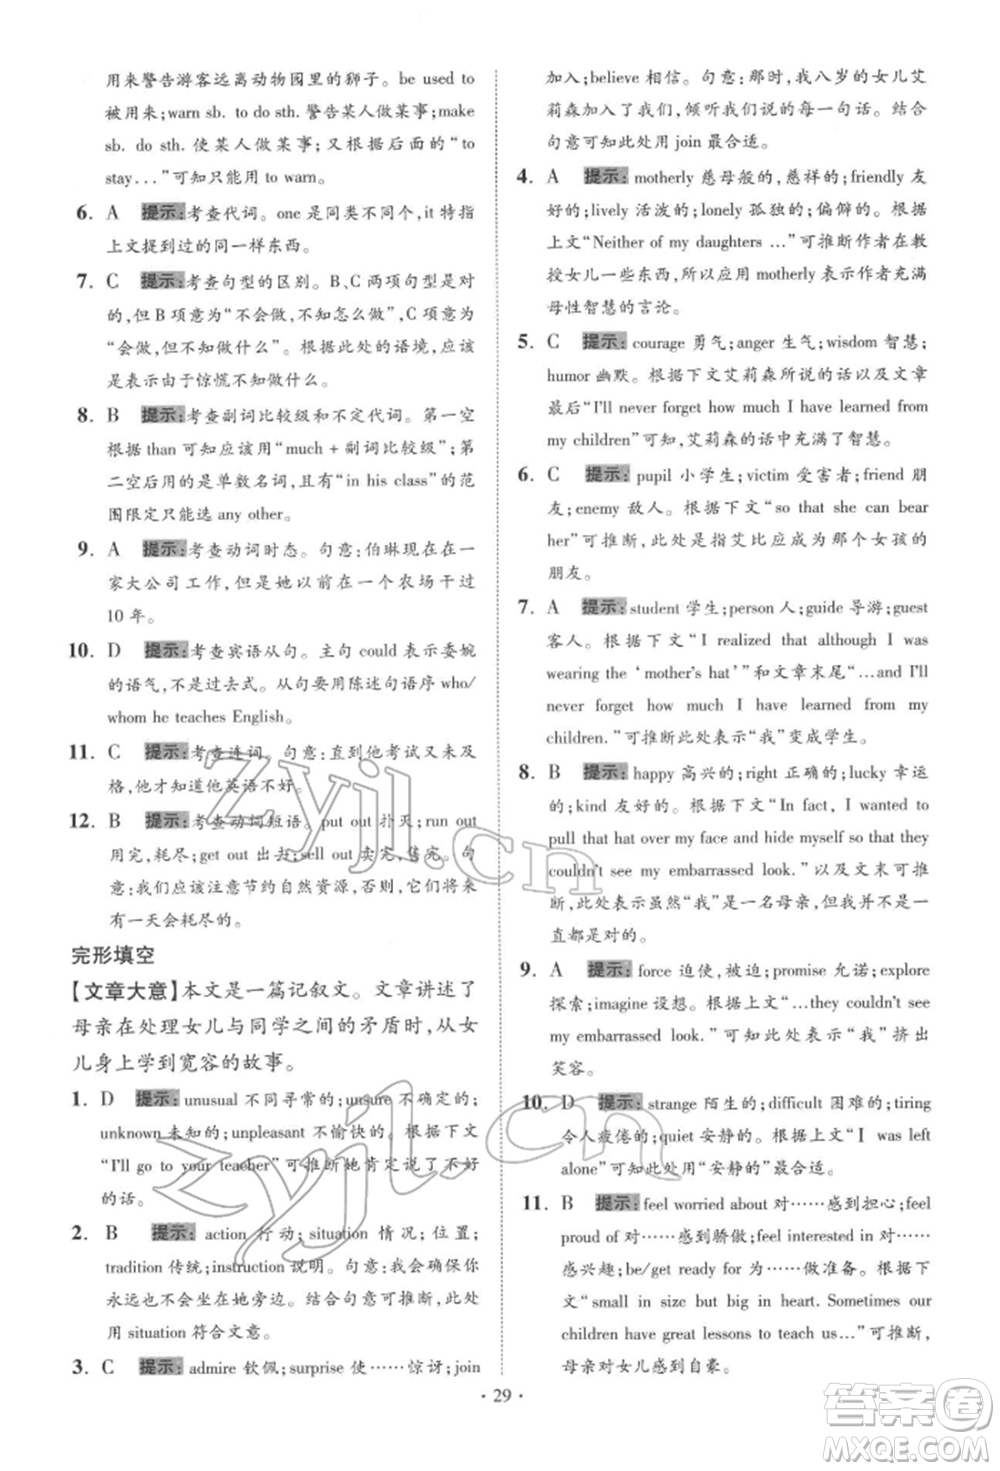 用来警告游客远离动物园里的狮子。be used to
被用来;warn sb. to do sth. 警告某人做某事;make
sb. do sth. 使某人做某事;又根据后面的“to
stay...”可知只能用 to warn。
6. A 提示:考查代词。one 是同类不同个,it 特指
上文提到过的同一样东西。
7. C 提示:考查句型的区别。B、C 两项句型是对
的,但 B 项意为“不会做,不知怎么做”,C 项意为
“会做,但不知做什么”。根据此处的语境,应该
是表示由于惊慌不知做什么。
8. B 提示:考查副词比较级和不定代词。第一空
根据 than 可知应该用“much + 副词比较级”;第
二空后用的是单数名词,且有“in his class”的范
围限定只能选 any other。
9. A 提示:考查动词时态。句意:伯琳现在在一
家大公司工作,但是她以前在一个农场干过
10 年。
10. D 提示:考查宾语从句。主句 could 表示委婉
的语气,不是过去式。从句要用陈述句语序 who/
whom he teaches English。
11. C 提示:考查连词。句意:直到他考试又未及
格,他才知道他英语不好。
12. B 提示:考查动词短语。put out 扑灭;run out
用完,耗尽;get out 出去;sell out 卖完,售完。句
意:我们应该注意节约自然资源,否则,他们将
有一天会耗尽的。
完形填空
【文章大意】本文是一篇记叙文。文章讲述了
母亲在处理女儿与同学之间的矛盾时,从女
儿身上学到宽容的故事。
1. D 提示:unusual 不同寻常的;unsure 不确定的;
unknown 未知的;unpleasant 不愉快的。根据下文
“I'll go to your teacher”可推断她肯定说了不好
的话。
2. B 提示:action 行动;situation 情况,位置;
tradition 传统;instruction 说明。句意:我能确保你
永远也不会坐在她旁边。结合句意可推断,此处
用 situation 符合文意。
3. C 提示:admire 钦佩;surprise 使……惊讶;join
加入;believe 相信。句意:那时,我八岁的女儿艾
莉森加入了我们,倾听我们说的每一句话。结合
句意可知此处用 join 最合适。
4. A 提示:motherly 慈母般的,慈祥的;friendly 友
好的;lively 活泼的;lonely 孤独的;偏僻的。根据
上文“Neither of my daughters ...”可推断作者在教
授女儿一些东西,所以应用 motherly 表示作者充满
母性智慧的言论。
5. C 提示:courage 勇气;anger 生气;wisdom 智慧;
humor 幽默。根据下文艾莉森所说的话以及文章
最后“I'll never forget how much I have learned from
my children”可知,艾莉森的话中充满了智慧。
6. C 提示:pupil 小学生;victim 受害者;friend 朋
友;enemy 敌人。根据下文“so that she can bear
her”可推断,此处是指艾比应成为这个女孩的
朋友。
7. A 提示:student 学生;person 人;guide 导游;guest
客人。根据下文“I realized that although I was
wearing the ‘mother's hat’”和文章末尾“I'll
never forget how much I have learned from my
children.”可推断此处表示“我”变成学生。
8. B 提示:happy 高兴的;right 正确的;lucky 幸运
的;kind 友好的。根据下文“In fact, I wanted to
pull that hat over my face and hide myself so that they
couldn't see my embarrassed look.”以及文末可推
断,此处表示虽然“我”是一名母亲,但并不是一
直都是对的。
9. A 提示:force 迫使,被迫;promise 允诺;explore
探索;imagine 设想。根据上文“they couldn't see
my embarrassed look.”可知此处表示“我”挤出
笑容。
10. D 提示:strange 陌生的;difficult 困难的;tiring
令人疲倦的;quiet 安静的。根据上文“I was left
alone”可知此处用“安静的”最合适。
11. B 提示:feel worried about 对……感到担心;feel
proud of 对……感到骄傲;feel interested in 对……
感兴趣;be/get ready for 为……做准备。根据下
文“small in size but big in heart. Sometimes our
children have great lessons to teach us...”可推断,
母亲对女儿感到自豪。
· 29 ·
zyjl.cn
zyjl.cn
答案圈
MXQE.COM